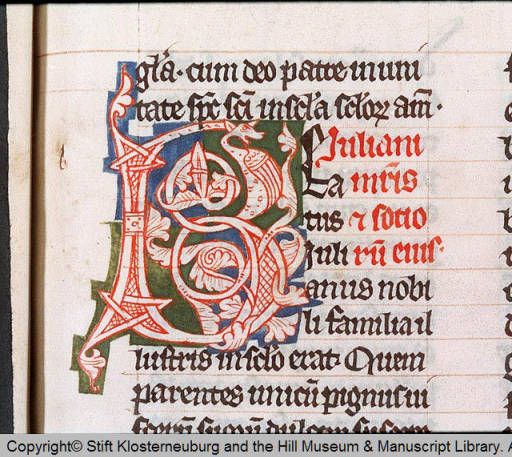 gl̄a. cum deo patre in uni
tate sp̄c sc̄i in sc̄la sc̄lorꝝ am̄.
BE Juliani
A mr̄is
tus ⁊ socio
Iuli rū eius.
anus nobi
li familia il
lustris in sc̄lo erat. Quem
parentes unicū pignus
Copyright© Stift Klosterneuburg and the Hill Museum & Manuscript Library. A